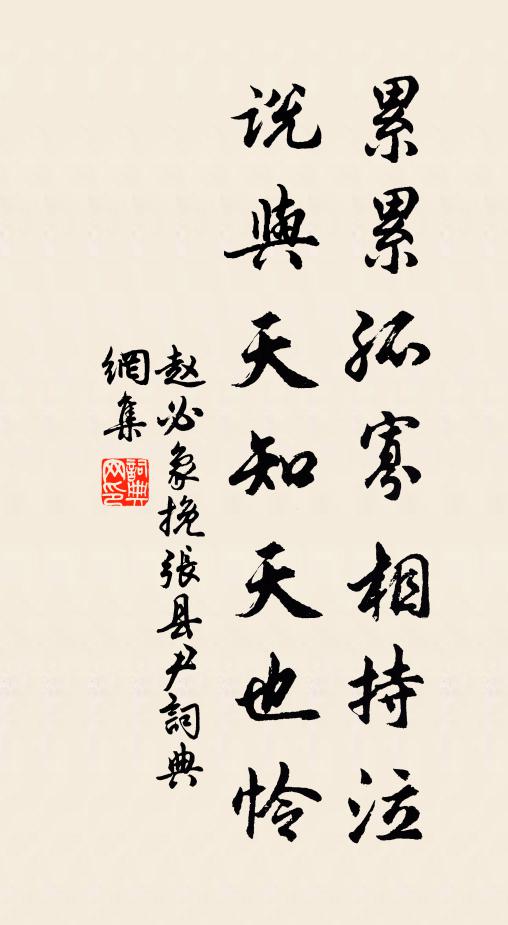 累累孤寡相持泣
説與天知天也怜
赵必象挽張县尹詞典
網集
詞典
网印